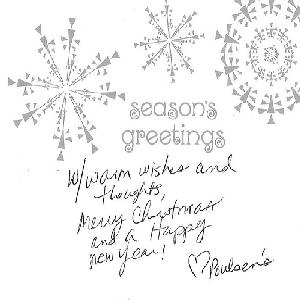 season's
greetings
w/warm wishes and
thoughts,
Merry Christmas
and a Happy
new year!
♡Poulsen's